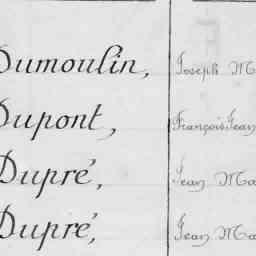 Dumoulin, Joseph M
Dupont, François Jean
Dupré, Jean Ma
Dupré, Jean Ma